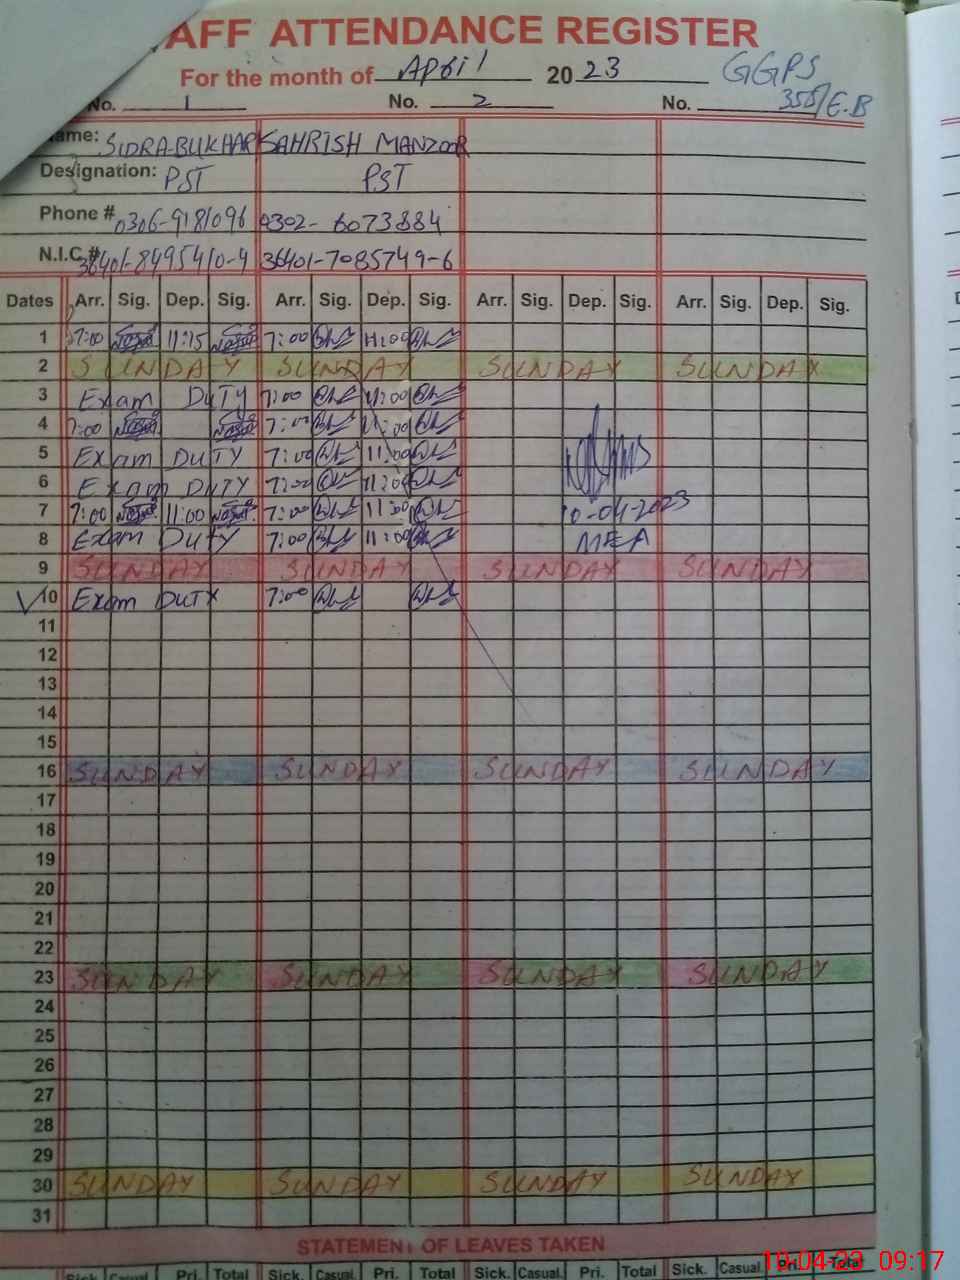 AFF ATTENDANCE REGISTER
For the month of April 2023 GGPS
No. 1 No. 2 No. 355/E.B
ame: SIDRA-BUKHARI SAHRISH MANZOOR
Designation: PST PST
Phone # 0306-9181096 0302-6073884
N.I.C.# 36401-8495410-4 36401-7085749-6
Dates Arr. Sig. Dep. Sig. Arr. Sig. Dep. Sig. Arr. Sig. Dep. Sig. Arr. Sig. Dep. Sig.
1 7:00 11:15 7:00 11:00
2 SUNDAY SUNDAY SUNDAY SUNDAY
3 Exam DUTY 7:00 11:00
4 7:00 7:00 11:00
5 Exam DUTY 7:00 11:00
6 Exam DUTY 7:00 11:00
7 7:00 11:00 7:00 11:00 10-04-2023
8 Exam Duty 7:00 11:00 MEA
9 SUNDAY SUNDAY SUNDAY SUNDAY
10 Exam DUTY 7:00
11
12
13
14
15
16 SUNDAY SUNDAY SUNDAY SUNDAY
17
18
19
20
21
22
23 SUNDAY SUNDAY SUNDAY SUNDAY
24
25
26
27
28
29
30 SUNDAY SUNDAY SUNDAY SUNDAY
31
STATEMENT OF LEAVES TAKEN
Sick. Casual. Pri. Total Sick. Casual. Pri. Total Sick. Casual. Pri. Total Sick. Casual. Pri. Total
10-04-23 09:17